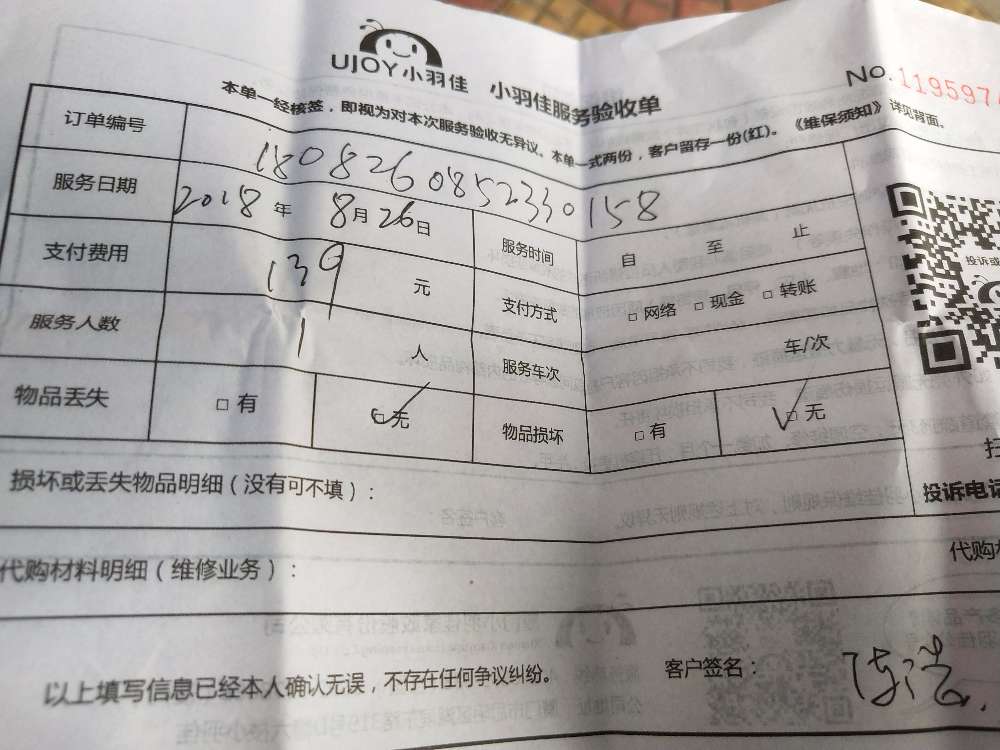 UJOY小羽佳 小羽佳服务验收单
No.119597
本单一经核签，即视为对本次服务验收无异议。本单一式两份，客户留存一份(红)。《维保须知》详见背面。
订单编号 1808260852330158
服务日期 2018年 8月26日 服务时间 自 至 止
支付费用 139 元 支付方式 □网络 □现金 □转账
服务人数 1 人 服务车次 车/次
物品丢失 □有 □无 物品损坏 □有 □无
投诉或
扫
投诉电话
损坏或丢失物品明细（没有可不填）：
代购材料明细（维修业务）：
代购材
以上填写信息已经本人确认无误，不存在任何争议纠纷。 客户签名：